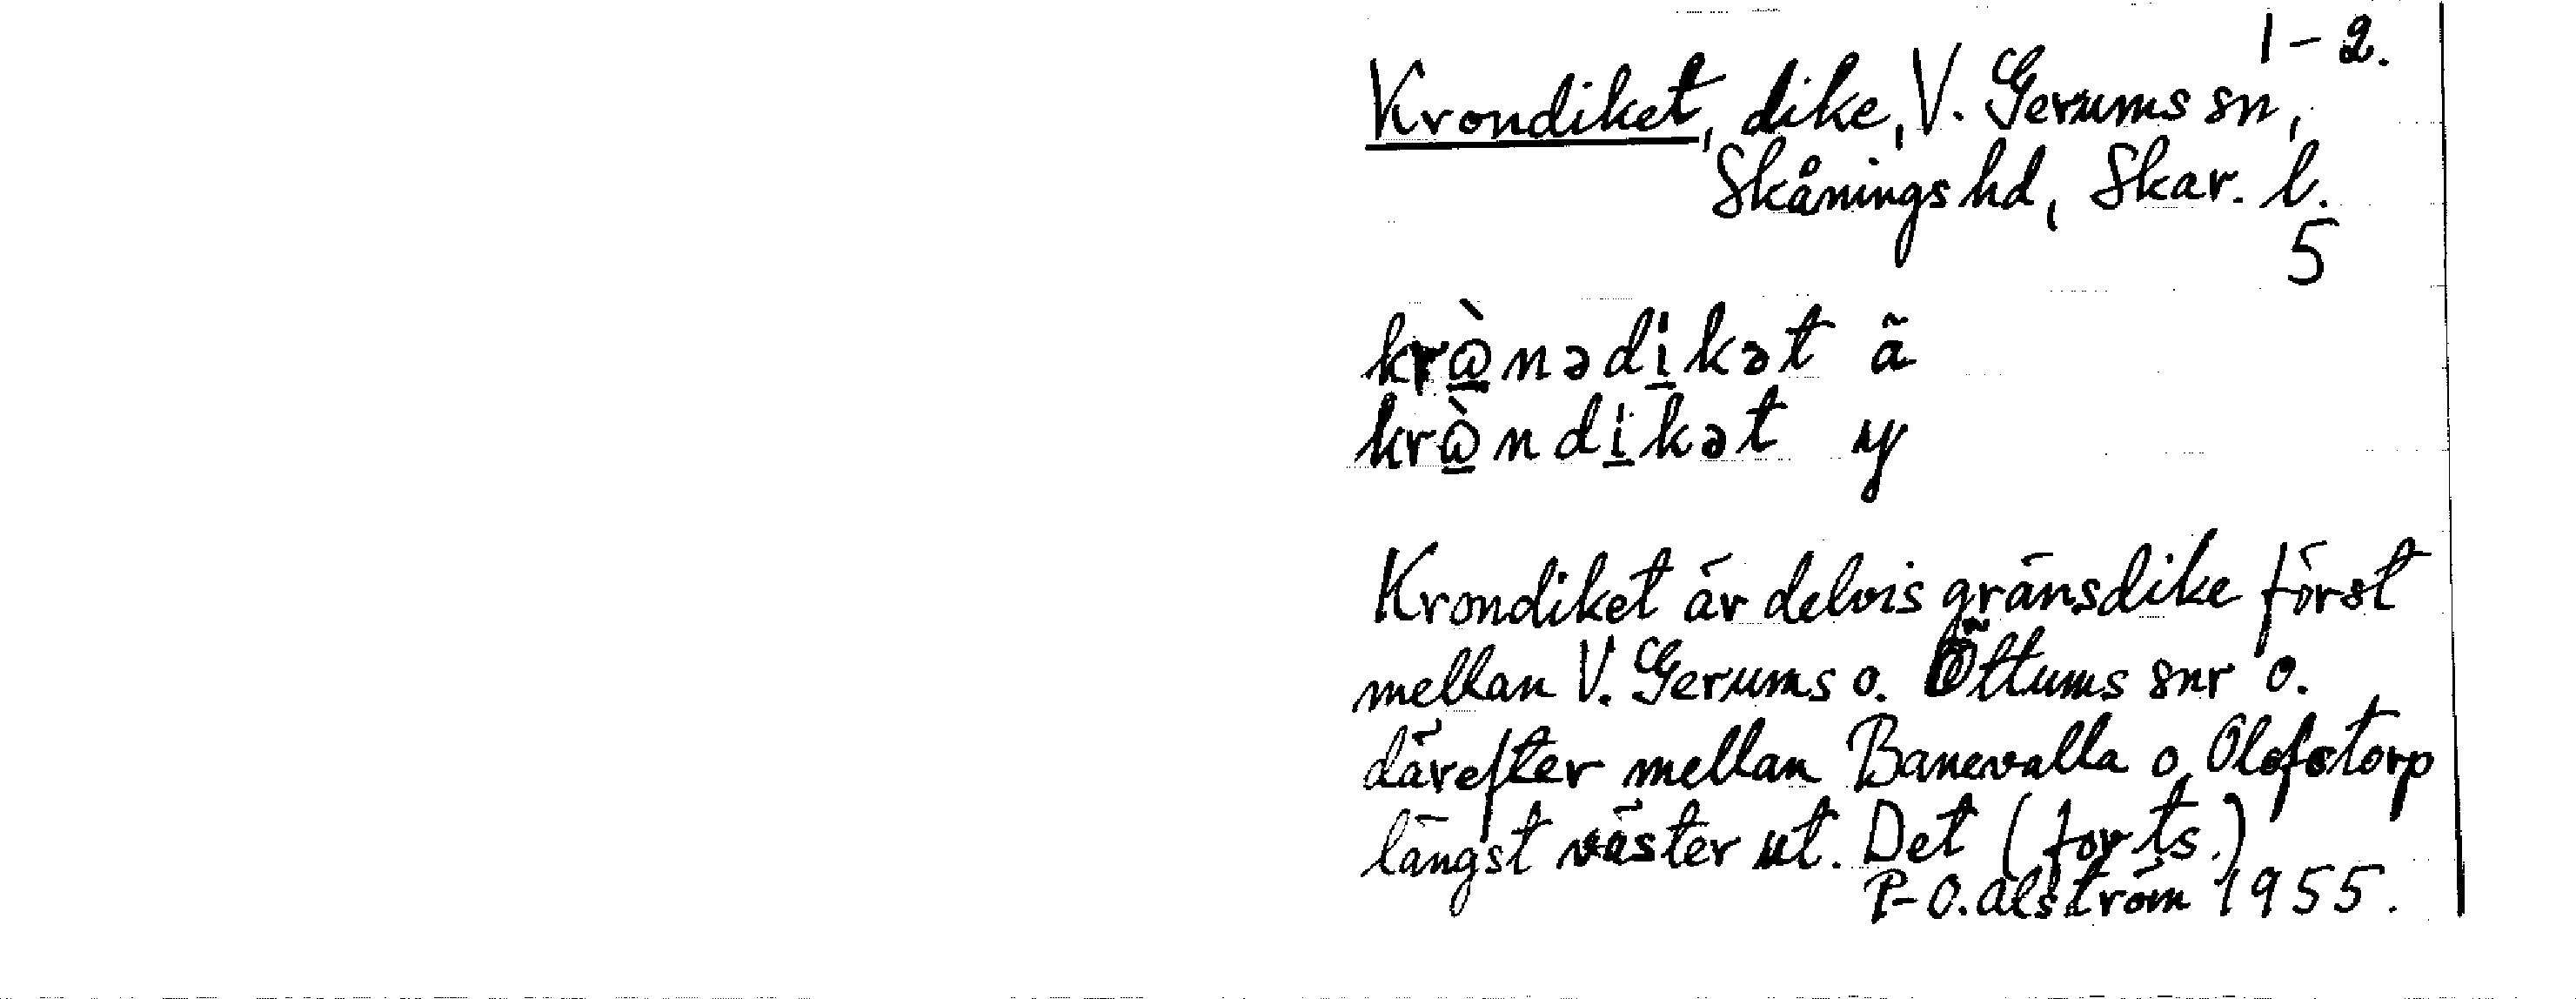 1-2.
Krondiket, dike, V. Gerums sn,
Skånings hd, Skar. l.
5
krὼnədi̱kət ä
krὼndi̱kət y
Krondiket är delvis gränsdike först
mellan V. Gerums o. Öttums snr o.
därefter mellan Banevalla o. Olofstorp
längst väster ut. Det (forts.)
P-O. Alström 1955.